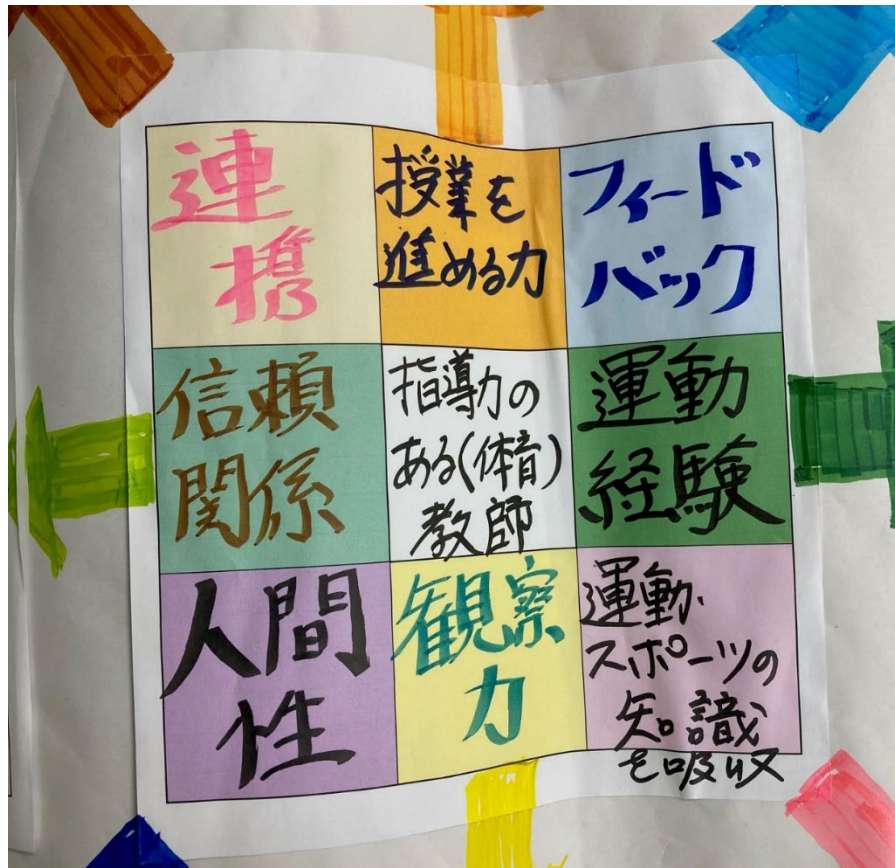 連
携
授業を
進める力
フィード
バック
信頼
関係
指導力の
ある(体育)
教師
運動
経験
人間
性
観察
力
運動・
スポーツの
知識
を吸収